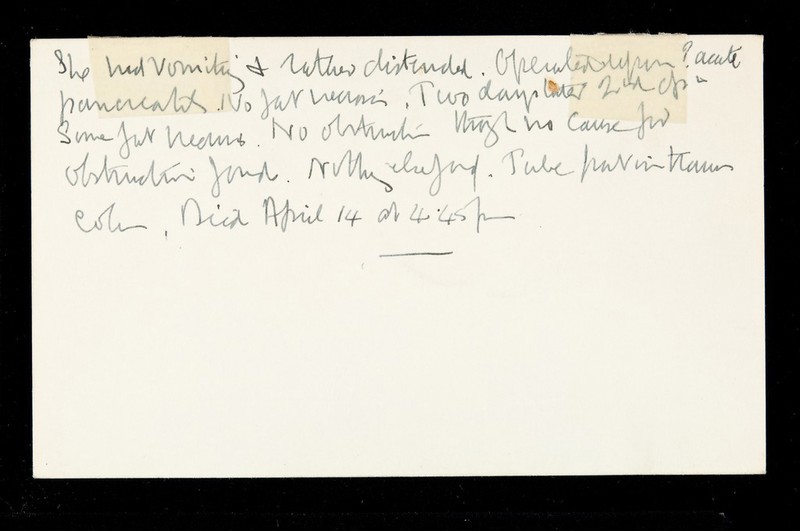 She had vomiting & rather distended. Operated upon ? acute
pancreatitis. No fat necrosis. Two days later 2nd opn
Some fat necrosis. No obstruction though no cause for
obstruction found. Nothing else found. Tube put in trans
colon, Died April 14 at 4.45 pm